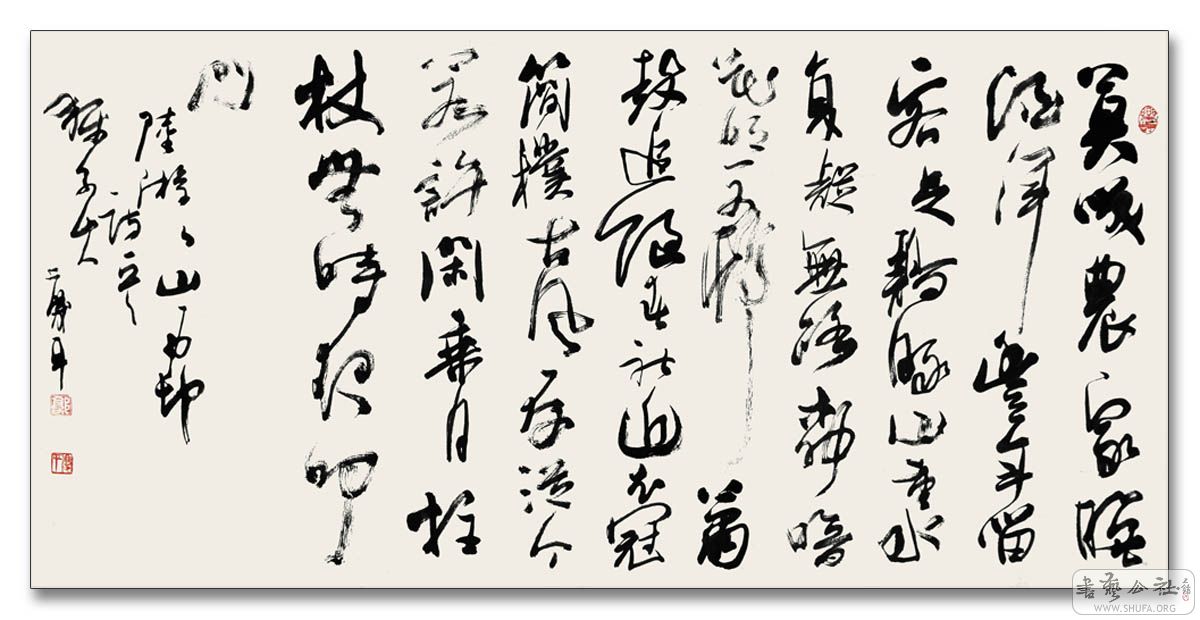 莫笑農家臘
酒渾豐年留
客足鷄豚山重水
復疑無路柳暗
花明一又村蕭
鼓追隨春社近衣冠
簡樸古風存從今
若許閑乘月拄
杖無時夜叩
門
陸游遊山西邨
一詩
書藝公社
WWW.SHUFA.ORG